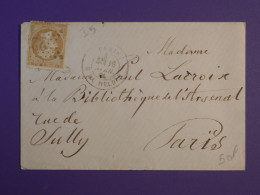 39
PARIS
Madame
Monsieur Paul Lacroix
à la Bibliothèque de l'Arsenal
rue de
Sully
Paris